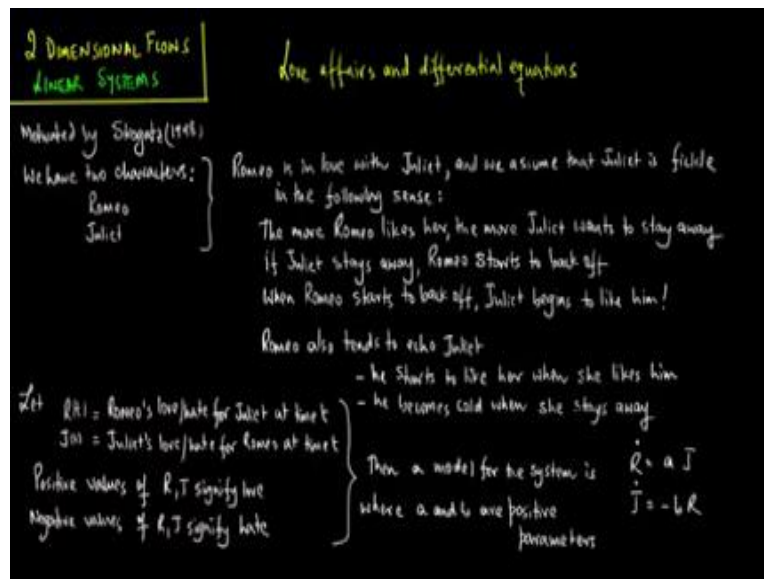 2 DIMENSIONAL FLOWS
LINEAR SYSTEMS
Love affairs and differential equations
Motivated by Strogatz (1988)
We have two characters:
Romeo
Juliet
Romeo is in love with Juliet, and we assume that Juliet is fickle
in the following sense:
The more Romeo likes her, the more Juliet wants to stay away
If Juliet stays away, Romeo starts to back off
When Romeo starts to back off, Juliet begins to like him!
Romeo also tends to echo Juliet
- he starts to like her when she likes him
- he becomes cold when she stays away
Let R(t) = Romeo's love/hate for Juliet at time t
J(t) = Juliet's love/hate for Romeo at time t
Positive values of R, J signify love
Negative values of R, J signify hate
Then a model for the system is
where a and b are positive
parameters
Ṙ = a J
J̇ = -b R